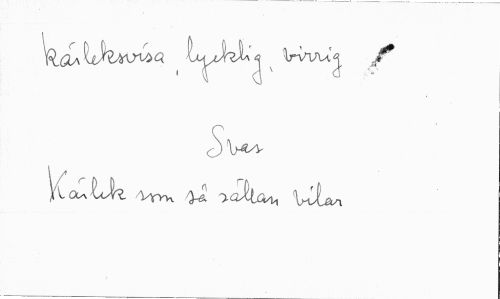 kärleksvisa, lycklig, virrig
Svas
Kärlek som så sällan vilar